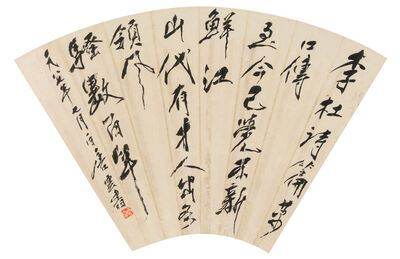 李杜詩篇萬
口傳
至今已覺不新
鮮江
山代有才人出各
領風
騷數百年
年七月唐雲書